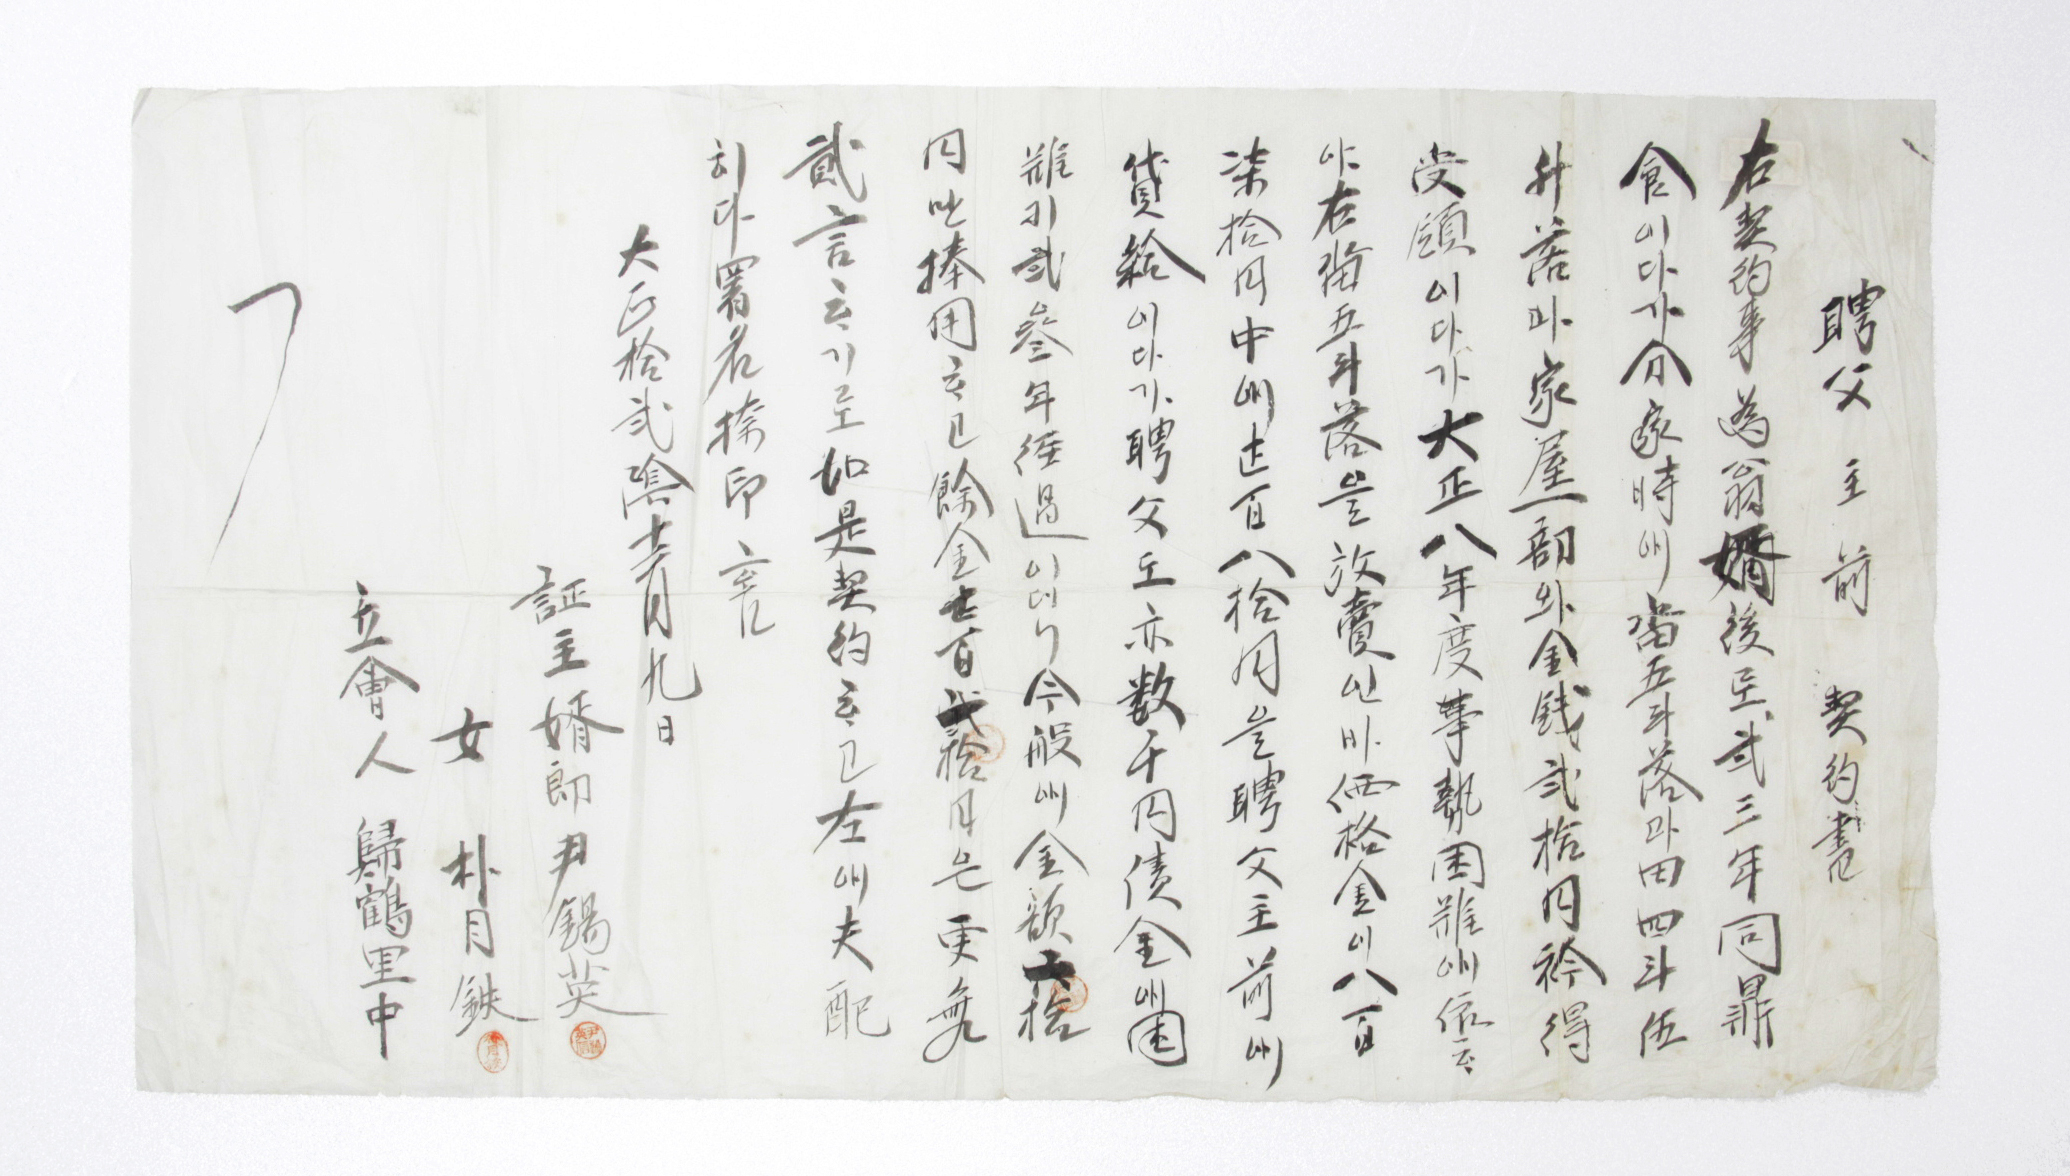 聘父主前 契約書
右契約事爲翁婿後로 貳三年同鼎
食이다가 分家時에 畓五斗落과 田四斗伍
升落과 家屋一部와 金錢貳拾円衿得
受領이다가 大正八年度事執困難에 依ᄒᆞ
야 右畓五斗落을 放賣인바 価格金이 八百
柒拾円中에 七百八拾円을 聘父主前에
貸給이다가 聘父도 亦数千円債金에 困
難키 貳參年經過이더니 今般에 金額六拾
円만 捧用ᄒᆞ고 餘金七百貳拾円은 更無
貳言ᄒᆞ기로 如是契約ᄒᆞ고 左에 夫配
히다 署名捺印홈
大正拾貳陰十二月九日
証主 婿郎 尹錫英
女 朴月鉄
立會人 歸鶴里中